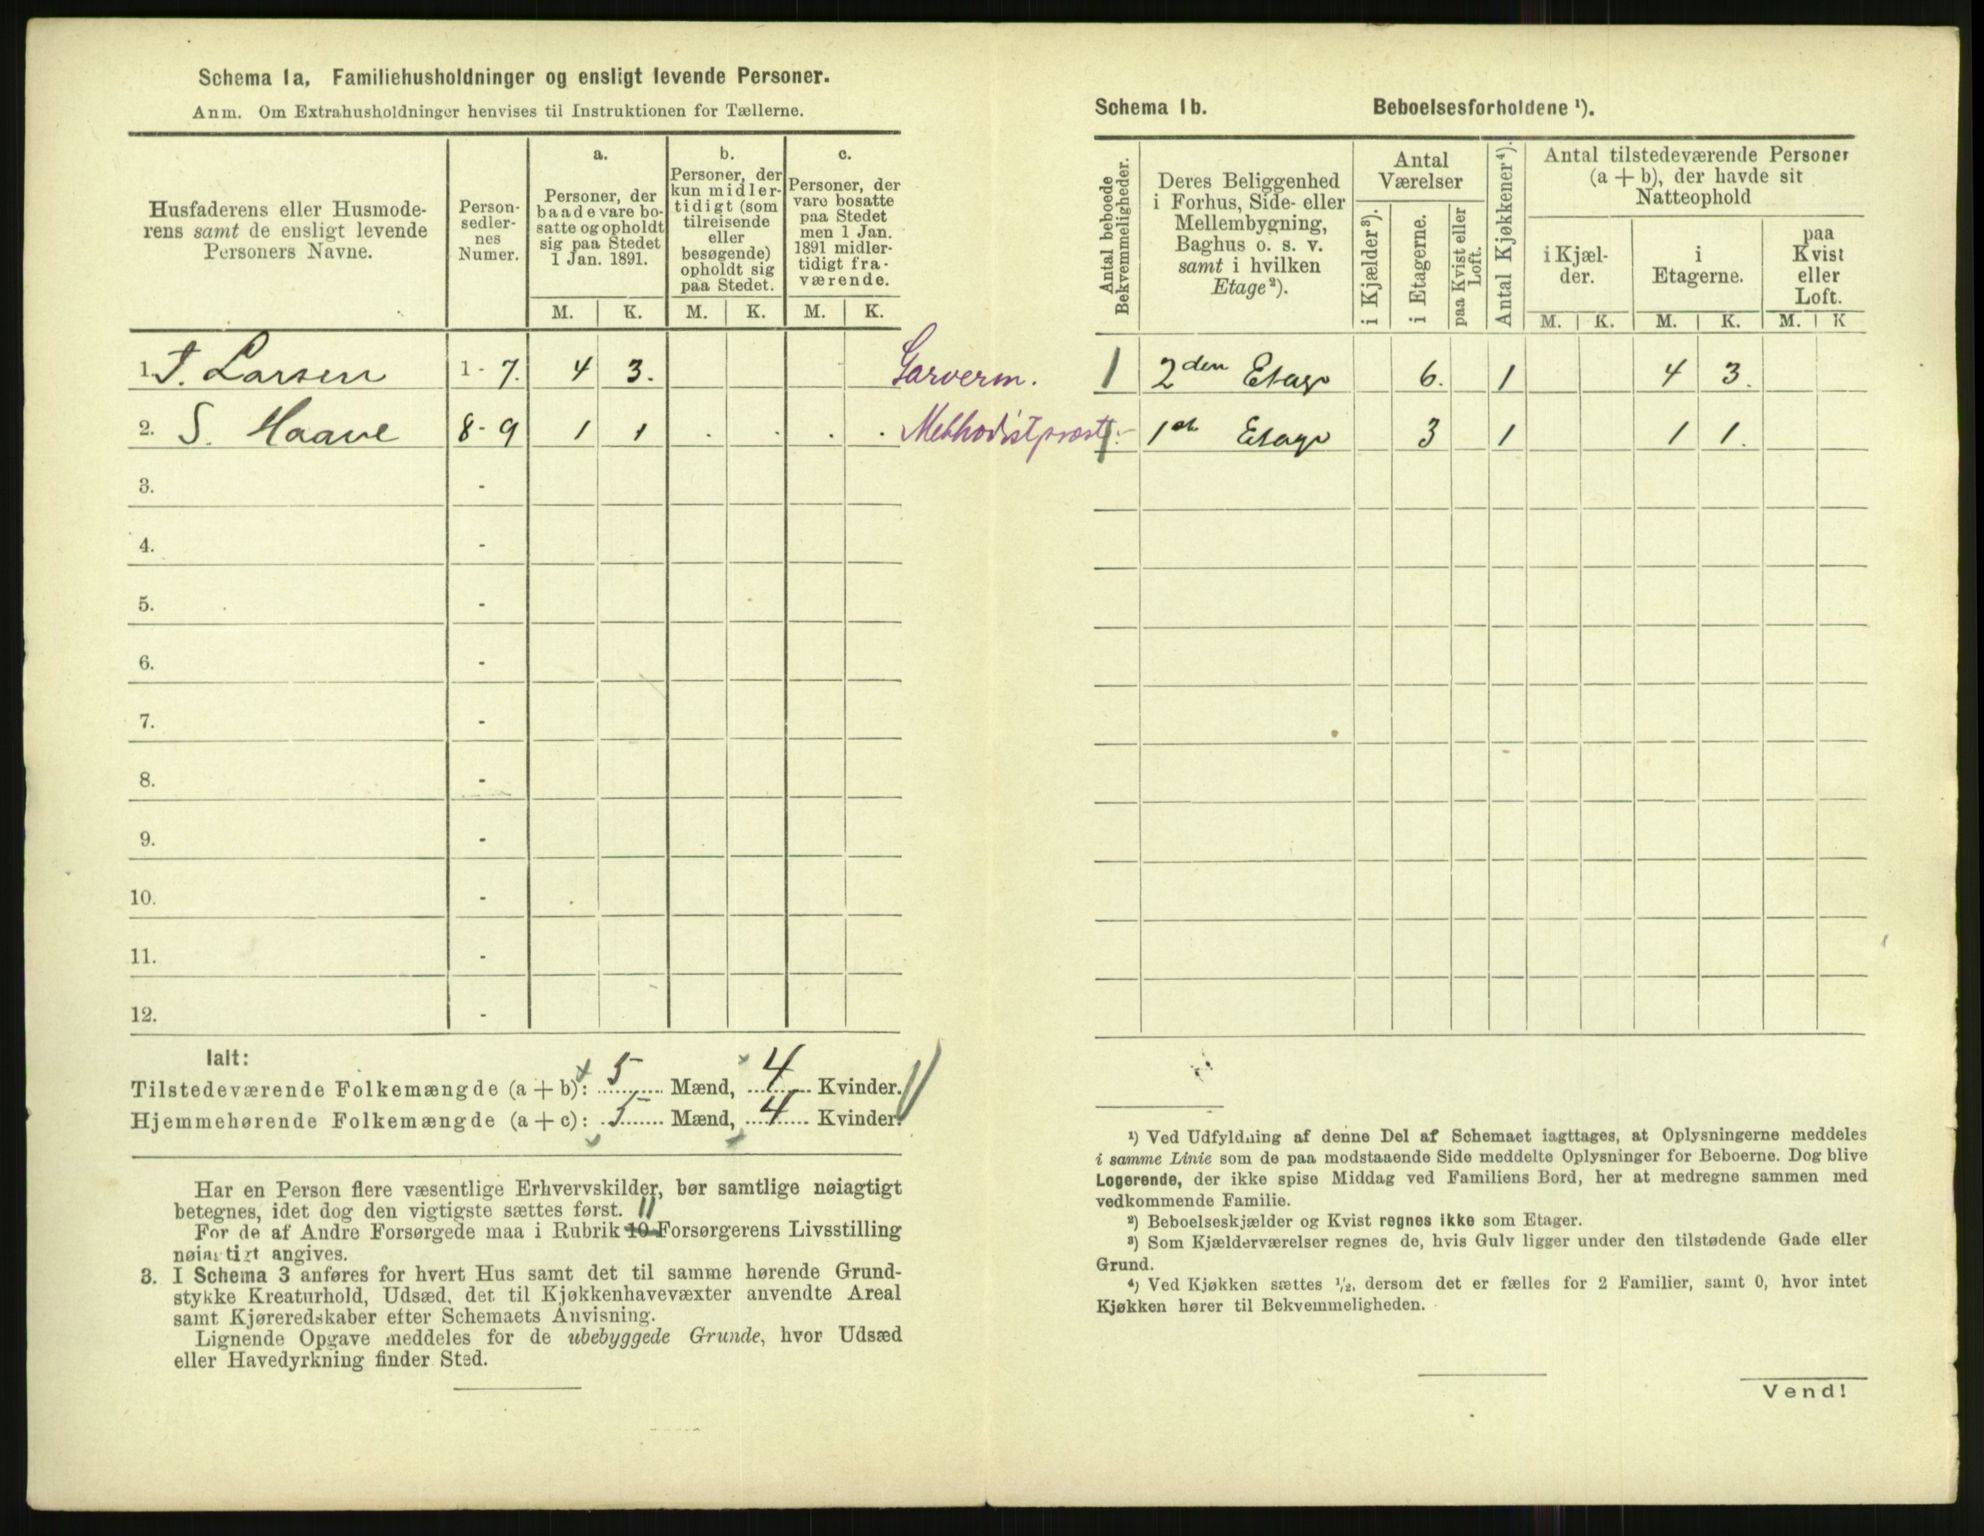 Schema 1a, Familiehusholdninger og ensligt levende Personer.
Anm. Om Extrahusholdninger henvises til Instruktionen for Tællerne.
Husfaderens eller Husmoderens samt de ensligt levende Personers Navne.
Personsedlernes Numer.
a.
Personer, der baade vare bosatte og opholdt sig paa Stedet 1 Jan. 1891.
b.
Personer, der kun midlertidigt (som tilreisende eller besøgende) opholdt sig paa Stedet.
c.
Personer, der vare bosatte paa Stedet men 1 Jan. 1891 midlertidigt fraværende.
M. K. M. K. M. K.
1. J. Larsen 1-7. 4 3. Garverm.
2. S. Haave 8-9 1 1 . . . . Methodistpræst.
3. -
4. -
5. -
6. -
7. -
8. -
9. -
10. -
11. -
12. -
Ialt:
Tilstedeværende Folkemængde (a + b): 5 Mænd, 4 Kvinder.
Hjemmehørende Folkemængde (a + c): 5 Mænd, 4 Kvinder.
Har en Person flere væsentlige Erhvervskilder, bør samtlige nøiagtigt
betegnes, idet dog den vigtigste sættes først. 11
For de af Andre Forsørgede maa i Rubrik 10 Forsørgerens Livsstilling
nøiagtigt angives.
3. I Schema 3 anføres for hvert Hus samt det til samme hørende Grund-
stykke Kreaturhold, Udsæd, det til Kjøkkenhavevæxter anvendte Areal
samt Kjøreredskaber efter Schemaets Anvisning.
Lignende Opgave meddeles for de ubebyggede Grunde, hvor Udsæd
eller Havedyrkning finder Sted.
Schema 1b. Beboelsesforholdene ¹).
Antal beboede Bekvemmeligheder.
Deres Beliggenhed i Forhus, Side- eller Mellembygning, Baghus o. s. v. samt i hvilken Etage²).
Antal Værelser
i Kjælder³).
i Etagerne.
paa Kvist eller Loft.
Antal Kjøkkener⁴).
Antal tilstedeværende Personer (a + b), der havde sit Natteophold
i Kjælder.
i Etagerne.
paa Kvist eller Loft.
M. K. M. K. M. K
1 2den Etage 6. 1 4 3.
1 1ste Etage 3 1 1 1.
¹) Ved Udfyldning af denne Del af Schemaet iagttages, at Oplysningerne meddeles
i samme Linie som de paa modstaaende Side meddelte Oplysninger for Beboerne. Dog blive
Logerende, der ikke spise Middag ved Familiens Bord, her at medregne sammen med
vedkommende Familie.
²) Beboelseskjælder og Kvist regnes ikke som Etager.
³) Som Kjælderværelser regnes de, hvis Gulv ligger under den tilstødende Gade eller
Grund.
⁴) Ved Kjøkken sættes ¹/₂, dersom det er fælles for 2 Familier, samt 0, hvor intet
Kjøkken hører til Bekvemmeligheden.
Vend!